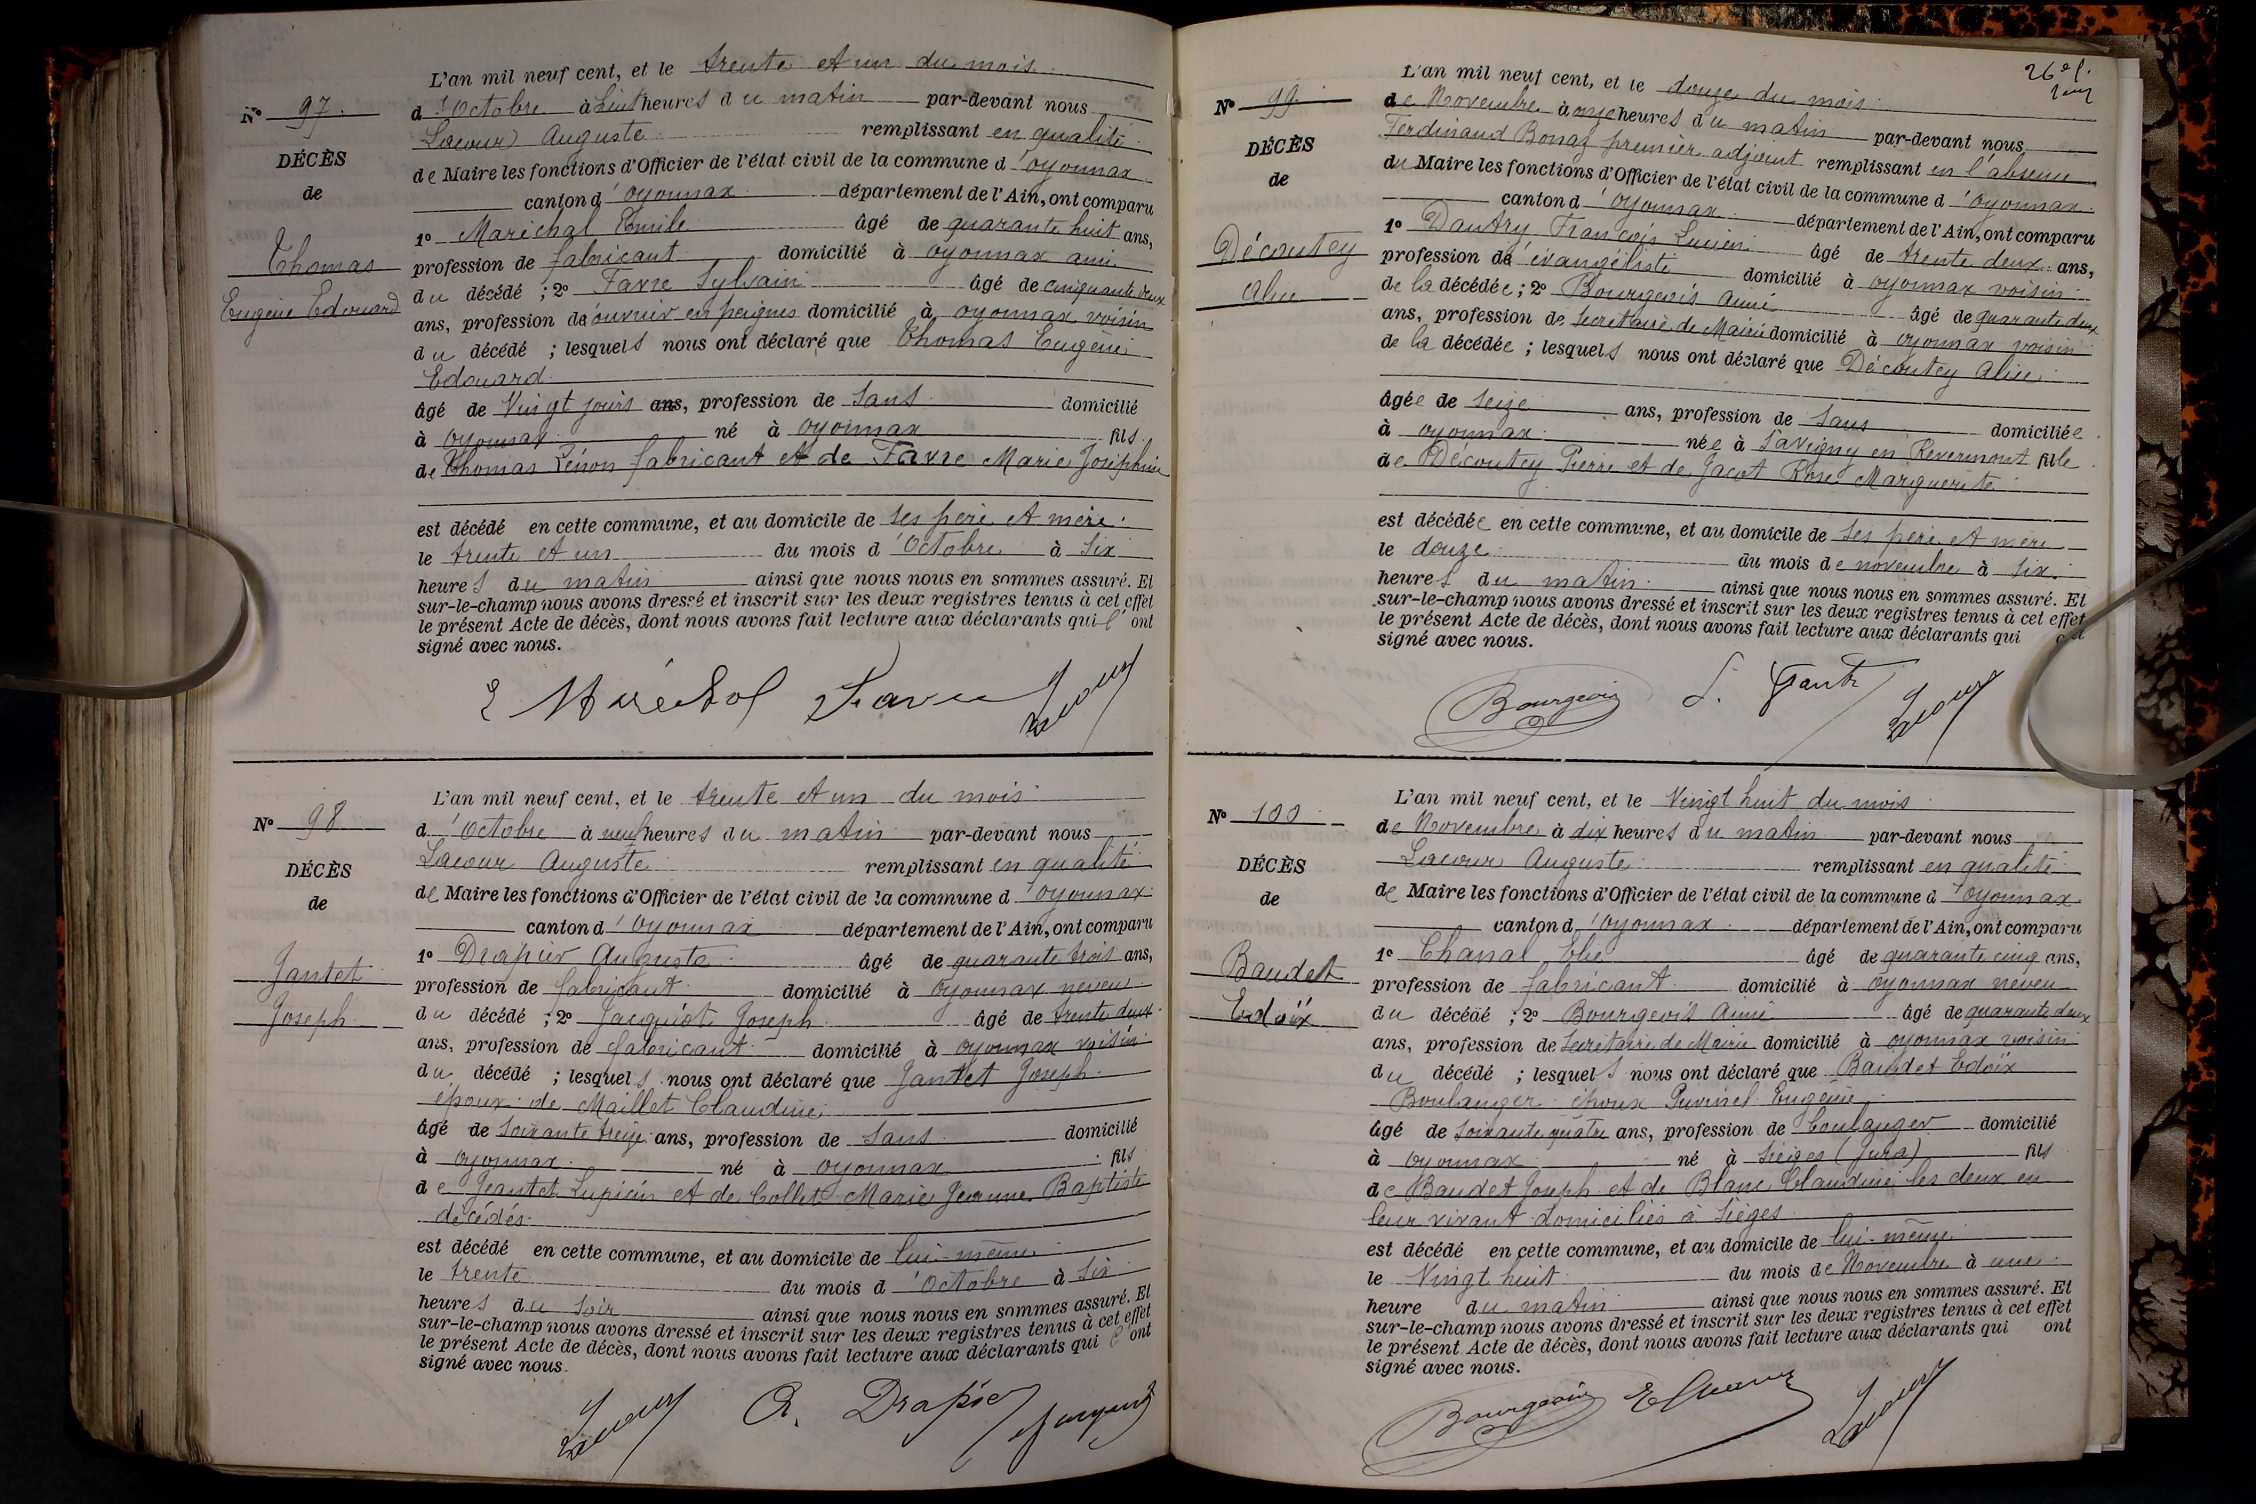 L'an mil neuf cent, et le trente et un du mois
d'Octobre à huit heures du matin par-devant nous
Lacour Auguste remplissant en qualité
de Maire les fonctions d'Officier de l'état civil de la commune d'oyonnax
canton d'oyonnax département de l'Ain, ont comparu
1º Maréchal Emile âgé de quarante huit ans,
profession de fabricant domicilié à oyonnax ami
du décédé ; 2º Favre Sylvain âgé de cinquante deux
ans, profession de ouvrier en peignes domicilié à oyonnax voisin
du décédé ; lesquels nous ont déclaré que Thomas Eugène
Edouard
âgé de Vingt jours ans, profession de Sans domicilié
à oyonnax né à oyonnax fils
de Thomas Léon fabricant et de Favre Marie Joséphine
est décédé en cette commune, et au domicile de ses père et mère
le trente et un du mois d'Octobre à six
heures du matin ainsi que nous nous en sommes assuré. Et
sur-le-champ nous avons dressé et inscrit sur les deux registres tenus à cet effet
le présent Acte de décès, dont nous avons fait lecture aux déclarants qui l'ont
signé avec nous.
Nº 97
DÉCÈS
de
Thomas
Eugène Edouard
E Maréchal Favre Lacour
L'an mil neuf cent, et le trente et un du mois
d'Octobre à neuf heures du matin par-devant nous
Lacour Auguste remplissant en qualité
de Maire les fonctions d'Officier de l'état civil de la commune d'oyonnax
canton d'oyonnax département de l'Ain, ont comparu
1º Drapier Auguste âgé de quarante trois ans,
profession de fabricant domicilié à oyonnax neveu
du décédé ; 2º Jacquiot Joseph âgé de trente deux
ans, profession de fabricant domicilié à oyonnax voisin
du décédé ; lesquels nous ont déclaré que Jantet Joseph
époux de Maillet Claudine
âgé de soixante treize ans, profession de sans domicilié
à oyonnax né à oyonnax fils
de Jeantet Lupicin et de Collet Marie Jeanne Baptiste
décédés
est décédé en cette commune, et au domicile de lui-même
le trente du mois d'Octobre à six
heures du soir ainsi que nous nous en sommes assuré. Et
sur-le-champ nous avons dressé et inscrit sur les deux registres tenus à cet effet
le présent Acte de décès, dont nous avons fait lecture aux déclarants qui l'ont
signé avec nous.
Nº 98
DÉCÈS
de
Jantet
Joseph
Lacour A. Drapier
26e f.
L'an mil neuf cent, et le douze du mois
de Novembre à onze heures du matin par-devant nous
Ferdinand Bonaz premier adjoint remplissant en l'absence
du Maire les fonctions d'Officier de l'état civil de la commune d'oyonnax
canton d'oyonnax département de l'Ain, ont comparu
1º Dautry François Lucien âgé de trente deux ans,
profession d'évangéliste domicilié à oyonnax voisin
de la décédée ; 2º Bourgeois Aimé âgé de quarante deux
ans, profession de Secrétaire de Mairie domicilié à oyonnax voisin
de la décédée ; lesquels nous ont déclaré que Découtey Alice
âgée de seize ans, profession de sans domiciliée
à oyonnax née à Savigny en Revermont fille
de Découtey Pierre et de Jacot Rose Marguerite
est décédée en cette commune, et au domicile de ses père et mère
le douze du mois de novembre à six
heures du matin ainsi que nous nous en sommes assuré. Et
sur-le-champ nous avons dressé et inscrit sur les deux registres tenus à cet effet
le présent Acte de décès, dont nous avons fait lecture aux déclarants qui ont
signé avec nous.
Nº 99
DÉCÈS
de
Découtey
Alice
Bourgeois Lacour
L'an mil neuf cent, et le Vingt huit du mois
de Novembre à dix heures du matin par-devant nous
Lacour Auguste remplissant en qualité
de Maire les fonctions d'Officier de l'état civil de la commune d'oyonnax
canton d'oyonnax département de l'Ain, ont comparu
1º Chanal Elie âgé de quarante cinq ans,
profession de fabricant domicilié à oyonnax neveu
du décédé ; 2º Bourgeois Aimé âgé de quarante deux
ans, profession de Secrétaire de Mairie domicilié à oyonnax voisin
du décédé ; lesquels nous ont déclaré que Baudet Edoïx
Boulanger époux Eugénie
âgé de soixante quatre ans, profession de boulanger domicilié
à oyonnax né à Sièges (Jura) fils
de Baudet Joseph et de Blanc Claudine les deux en
leur vivant domiciliés à Sièges
est décédé en cette commune, et au domicile de lui-même
le Vingt huit du mois de Novembre à une
heure du matin ainsi que nous nous en sommes assuré. Et
sur-le-champ nous avons dressé et inscrit sur les deux registres tenus à cet effet
le présent Acte de décès, dont nous avons fait lecture aux déclarants qui ont
signé avec nous.
Nº 100
DÉCÈS
de
Baudet
Edoïx
Bourgeois Lacour